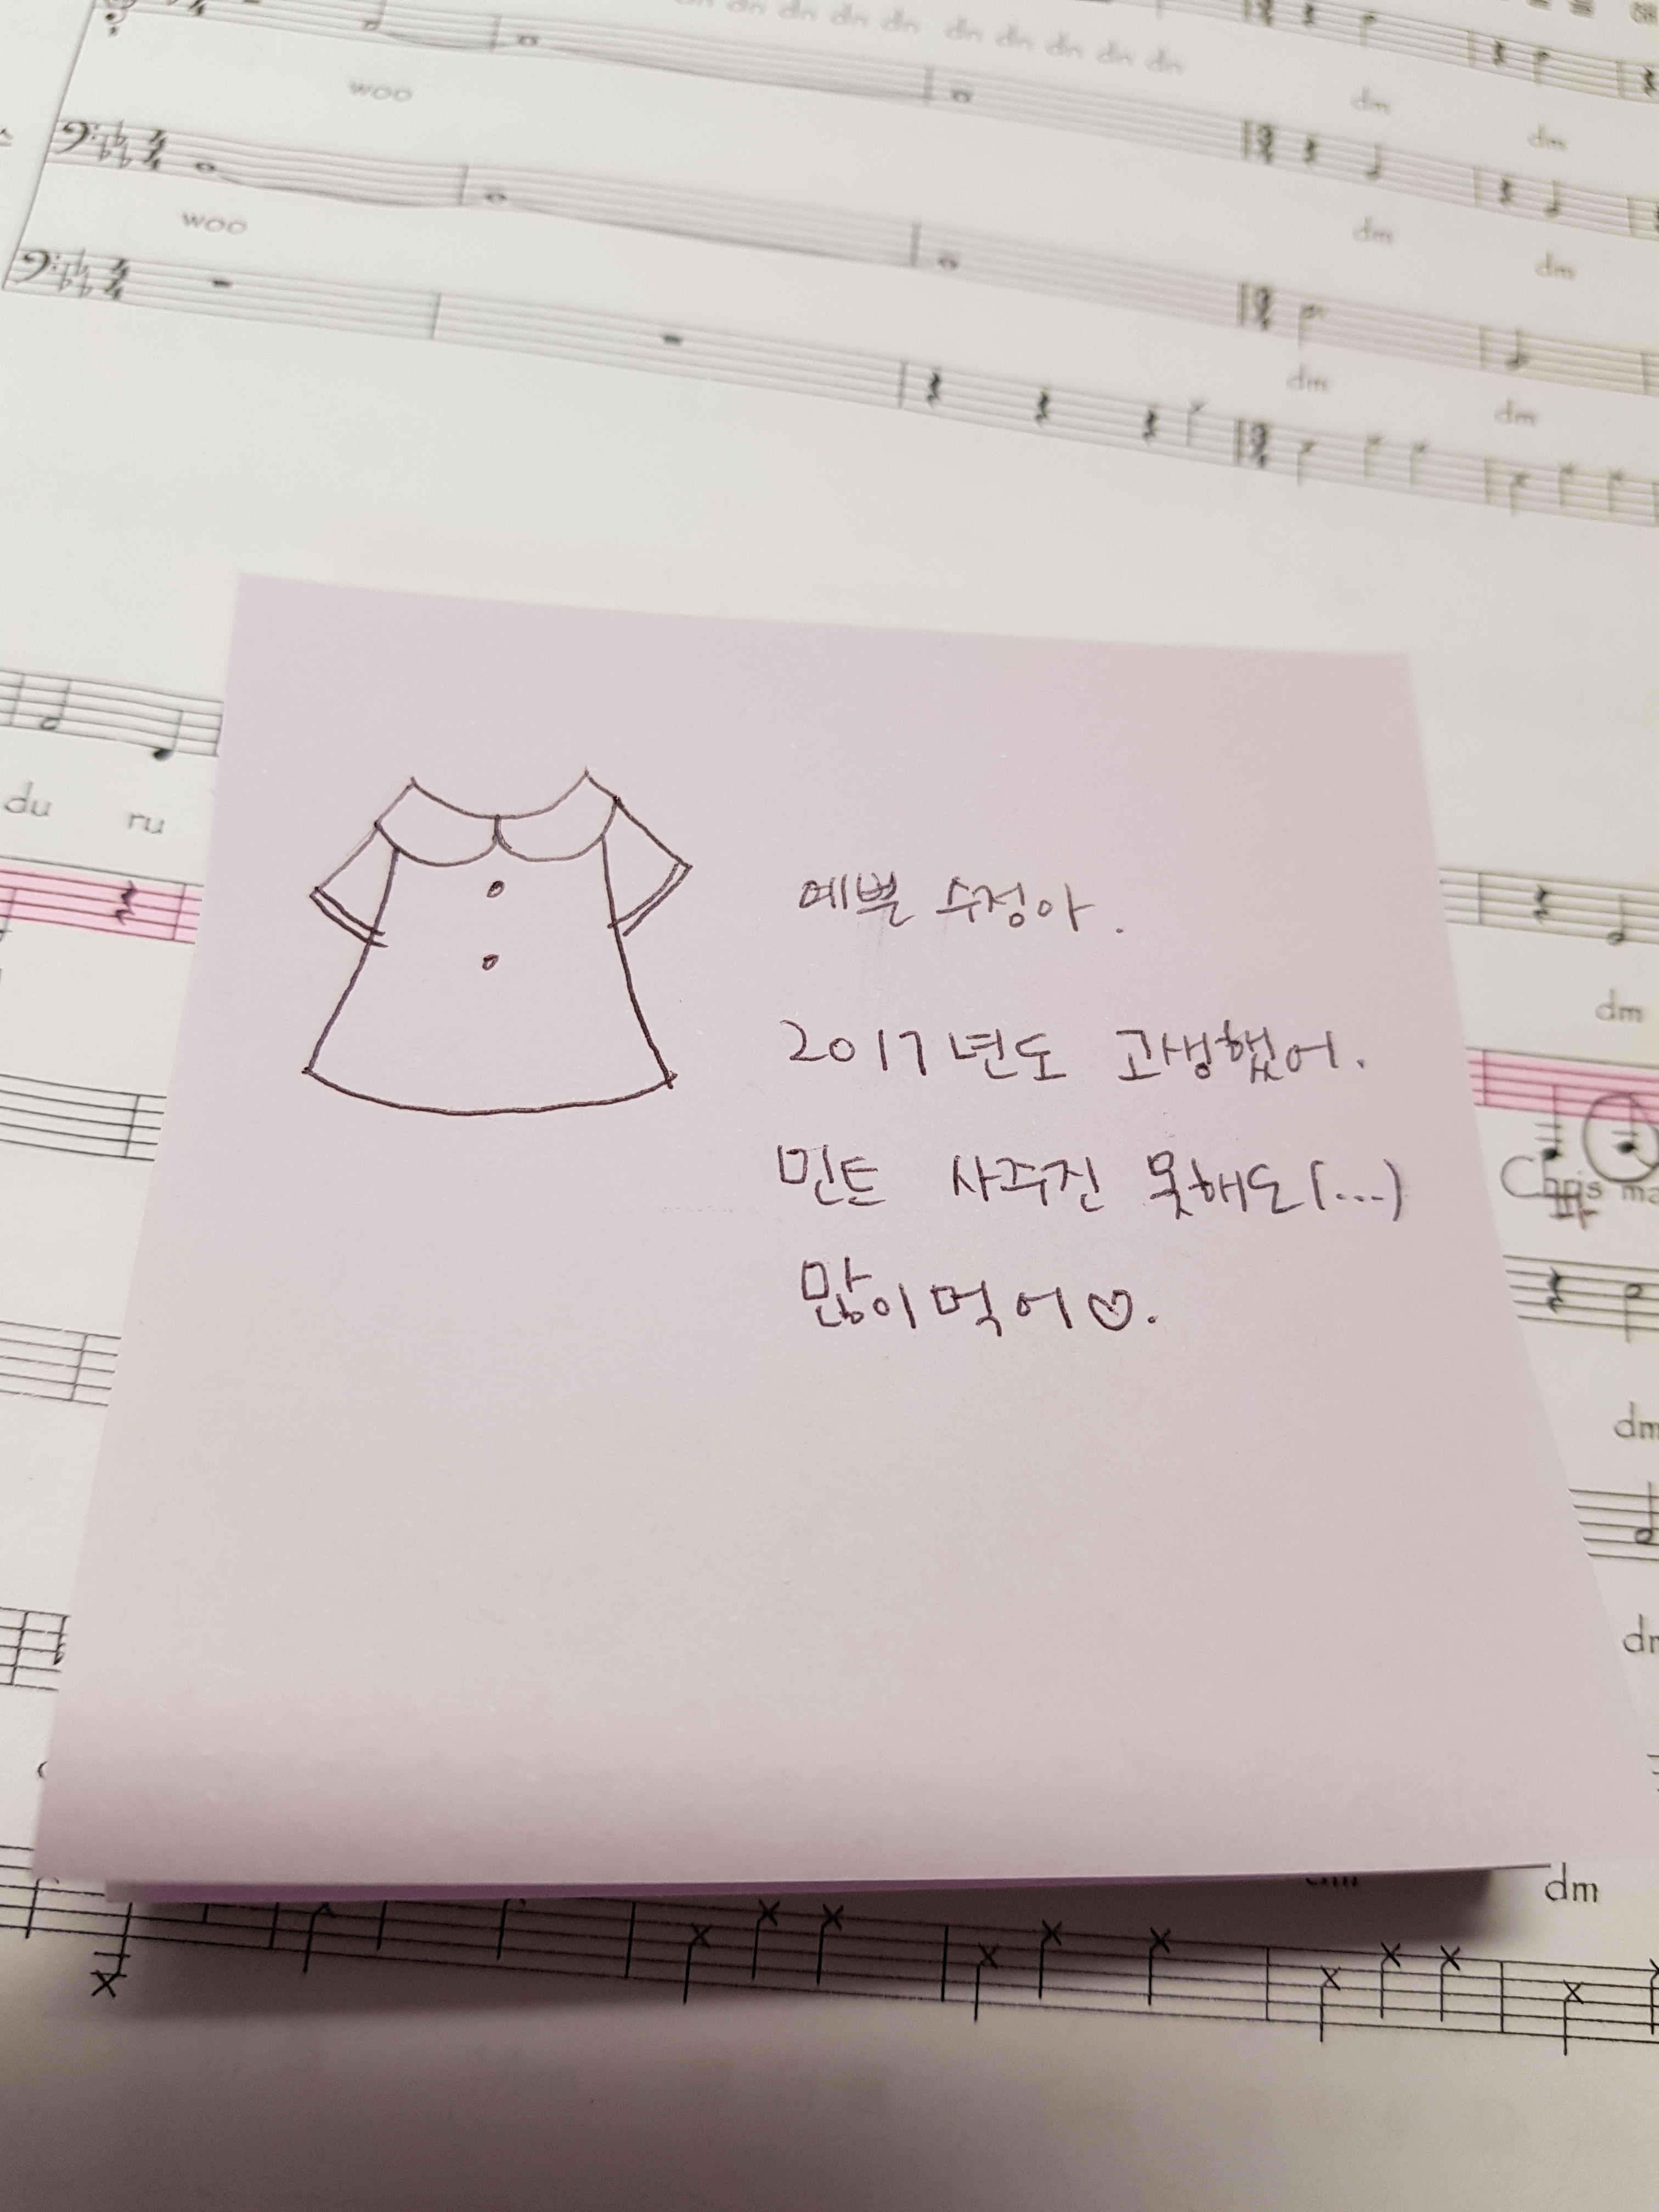 dn dn dn dn dn dn dn dn dn
woo
dm
dm
woo
dm
dm
dm
dm
du ru
예쁜 수정아.
dm
2017년도 고생했어.
민트 사주진 못해도(...)
Chris ma
많이먹어♡.
dm
dm